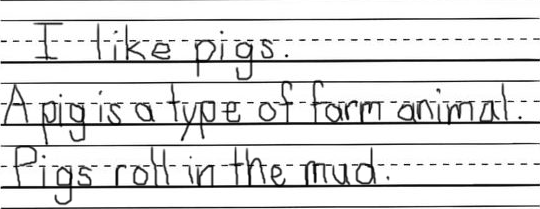 I like pigs.
A pig is a type of farm animal.
Pigs roll in the mud.